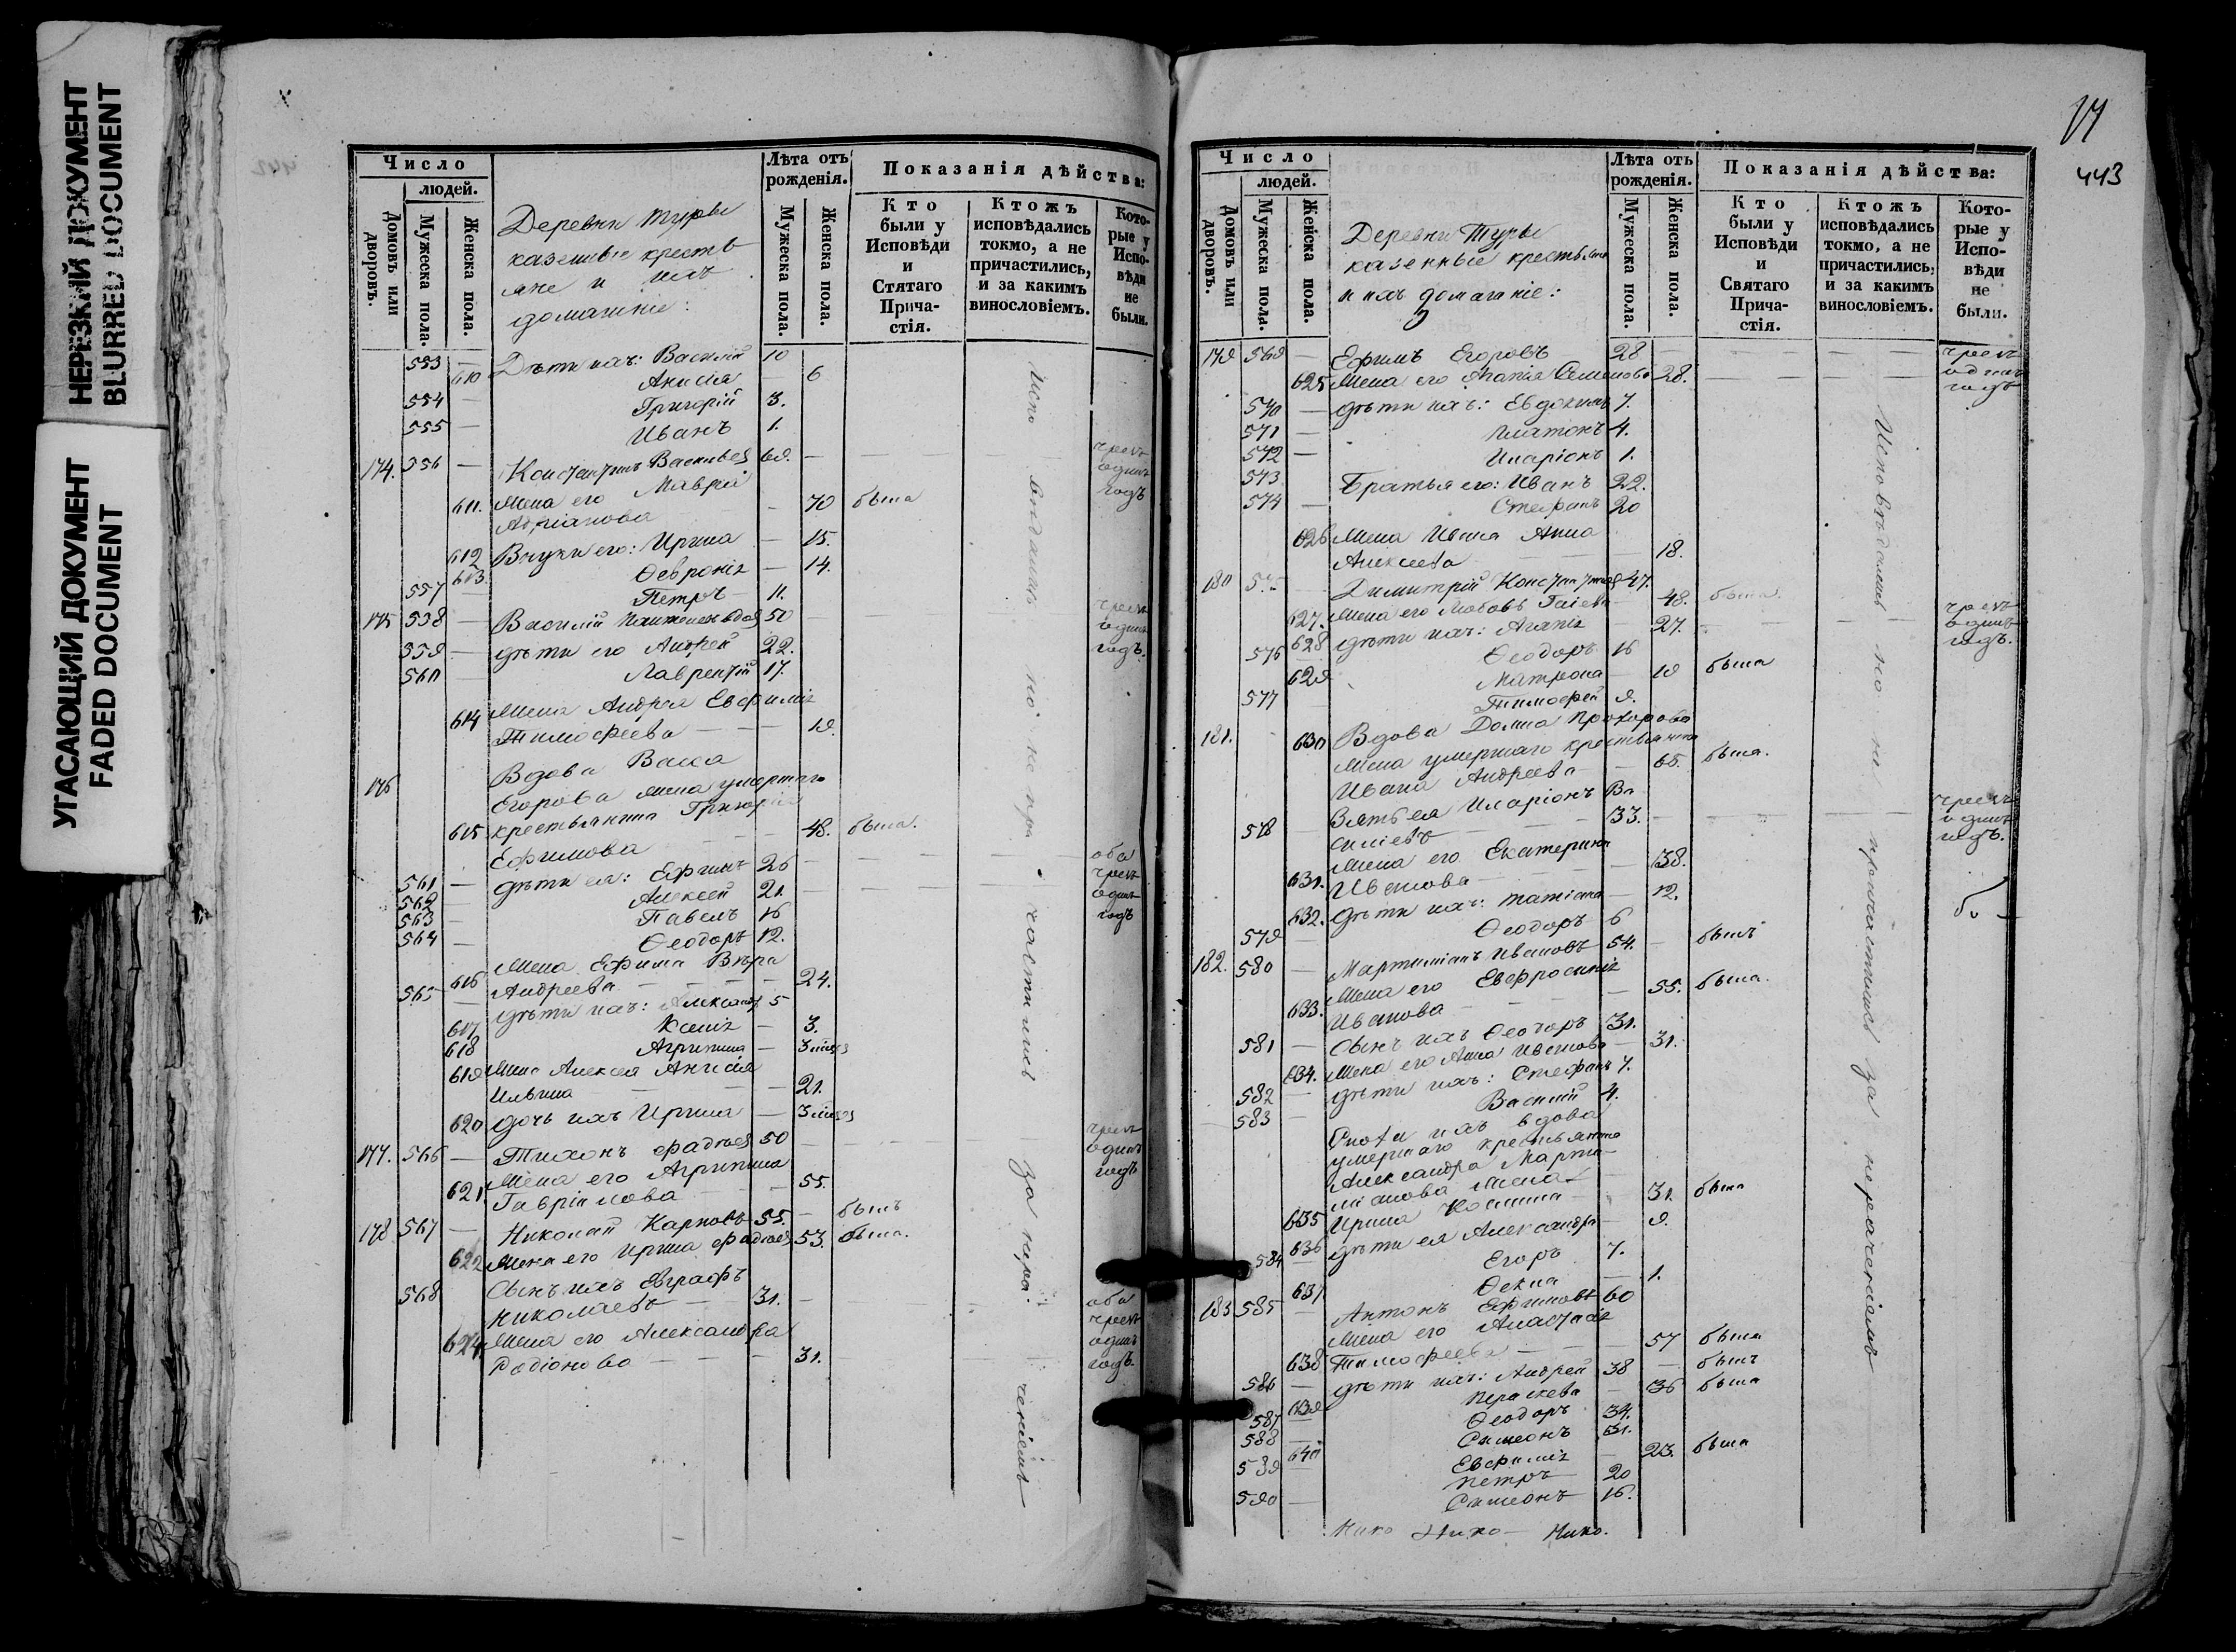 НЕРЕЗКИЙ ДОКУМЕНТ
BLURRED DOCUMENT
УГАСАЮЩИЙ ДОКУМЕНТ
FADED DOCUMENT
Число
людей.
Домовъ или дворовъ.
Мужеска пола.
Женска пола.
Деревни Туры
казенные кресть
яне и ихъ
домашніе:
Лѣта отъ рожденія.
Мужеска пола.
Женска пола.
Показанія дѣйства:
Кто были у Исповѣди и Стятаго Прича-стія.
Ктожъ исповѣдались токмо, а не причастились, и за какимъ винословіемъ.
Кото-рые у Испо-вѣди не были.
553 — Дѣти ихъ: Василій 10
610 Анисія — 6
554 — Григорій 3.
555 — Иванъ 1.
174. 556 — Константинъ Васильев 69. чрезъ одинъ годъ
611. Жена его Маврія
Адріанова — 70 была
612 Внуки его: Ирина — 15.
613 Ѳевронія — 14.
557 — Петръ 11.
175 558 — Василій 50 чрезъ одинъ годъ.
559 — дѣти его Андрей 22.
560 Лаврентій 17.
614 Жена Андрея Евфимія
Тимофеева — 19.
176 Вдова Васса
Егорова жена умершаго
615 крестьянина Григорія 48. была.
Ефимова
561 — дѣти ея: Ефимъ 26 оба чрезъ одинъ годъ
562 — Алексей 21.
563 — Павелъ 16
564 — Ѳеодоръ 12.
Жена Ефима Вѣра
616 Андреева 24.
565 — дѣти ихъ: Александр 5
617 Ксенія — 3.
618 Агрипина — 3 мѣсяц
619 Жена Алексея Анисія
Ильина 21.
620 дочь ихъ Ирина — 3 мѣсяц
177. 566 — Тихонъ Фадѣев 50 чрезъ одинъ годъ
Жена его Агрипина
621. Гавріилова 55.
178 567 — Николай Карповъ 55. — былъ
622 Жена его Ирина Фадѣев 53. была.
568 Сынъ ихъ Евграфъ
Николаевъ — 31. оба чрезъ одинъ годъ.
624 Жена его Александра
Родіонова — 31.
Исповѣдались но не причастились за нерачениемъ
443
Число
людей.
Домовъ или дворовъ.
Мужеска пола.
Женска пола.
Деревни Туры
казенные крестьяне
и ихъ домашніе:
Лѣта отъ рожденія.
Мужеска пола.
Женска пола.
Показанія дѣйства:
Кто были у Исповѣди и Святаго Прича-стія.
Ктожъ исповѣдались токмо, а не причастились, и за какимъ винословіемъ.
Кото-рые у Испо-вѣди не были.
179 569 — Ефимъ Егоровъ 28 чрезъ одинъ годъ
625 Жена его Агапія Семенова 28.
570 — дѣти ихъ: Евдокимъ 7.
571 — Платонъ 4.
572 — Иларіонъ 1.
573 Братья его: Иванъ 22.
574 — Стефанъ 20
626 Жена Ивана Анна
Алексеева — 18.
180 Димитрій Константинов 47.
627. Жена его Любовь 48. была.
628 дѣти ихъ: Агапія 27. чрезъ одинъ годъ.
576 Ѳеодоръ 16
629 Матрона 19 была
577 Тимофей 9.
181. 630 Вдова Домна Прохорова
жена умершаго крестьянина
Ивана Андреева — 65. была.
578 Зять ея Иларіонъ Ва
сильевъ 33. чрезъ одинъ годъ.
Жена его Екатерина
631. Иванова — 38.
632. дѣти ихъ: Татіана — 12.
579 — Ѳеодоръ 6
182. 580 — Мартиніанъ Ивановъ 54. — былъ
Жена его Евфросинія
633. Иванова 55. была.
581 — Сынъ ихъ Ѳеодоръ 31.
634. Жена его Анна Иванова 31.
582 — дѣти ихъ: Стефанъ 7.
583 — Василій 4.
Сноха ихъ вдова
умершаго крестьянина
Александра Марти-
ніанова жена
635 Ирина 31. была
636 дѣти ея Александра — 9.
584 — Егоръ 7.
637 Ѳекла 1.
183 585 — Антонъ Ефимовъ 60
Жена его Анастасія
638 Тимофеева 57 была
586 — дѣти ихъ: Андрей 38 — былъ
639 Параскева — 36 была
587 Ѳеодоръ 34.
588 — Симеонъ 31.
640 Евфимія 23. была
589 — Петръ 20
590 — Симеонъ 16.
Исповѣдались но не причастились за нераченіемъ
Нико Нико — Нико.